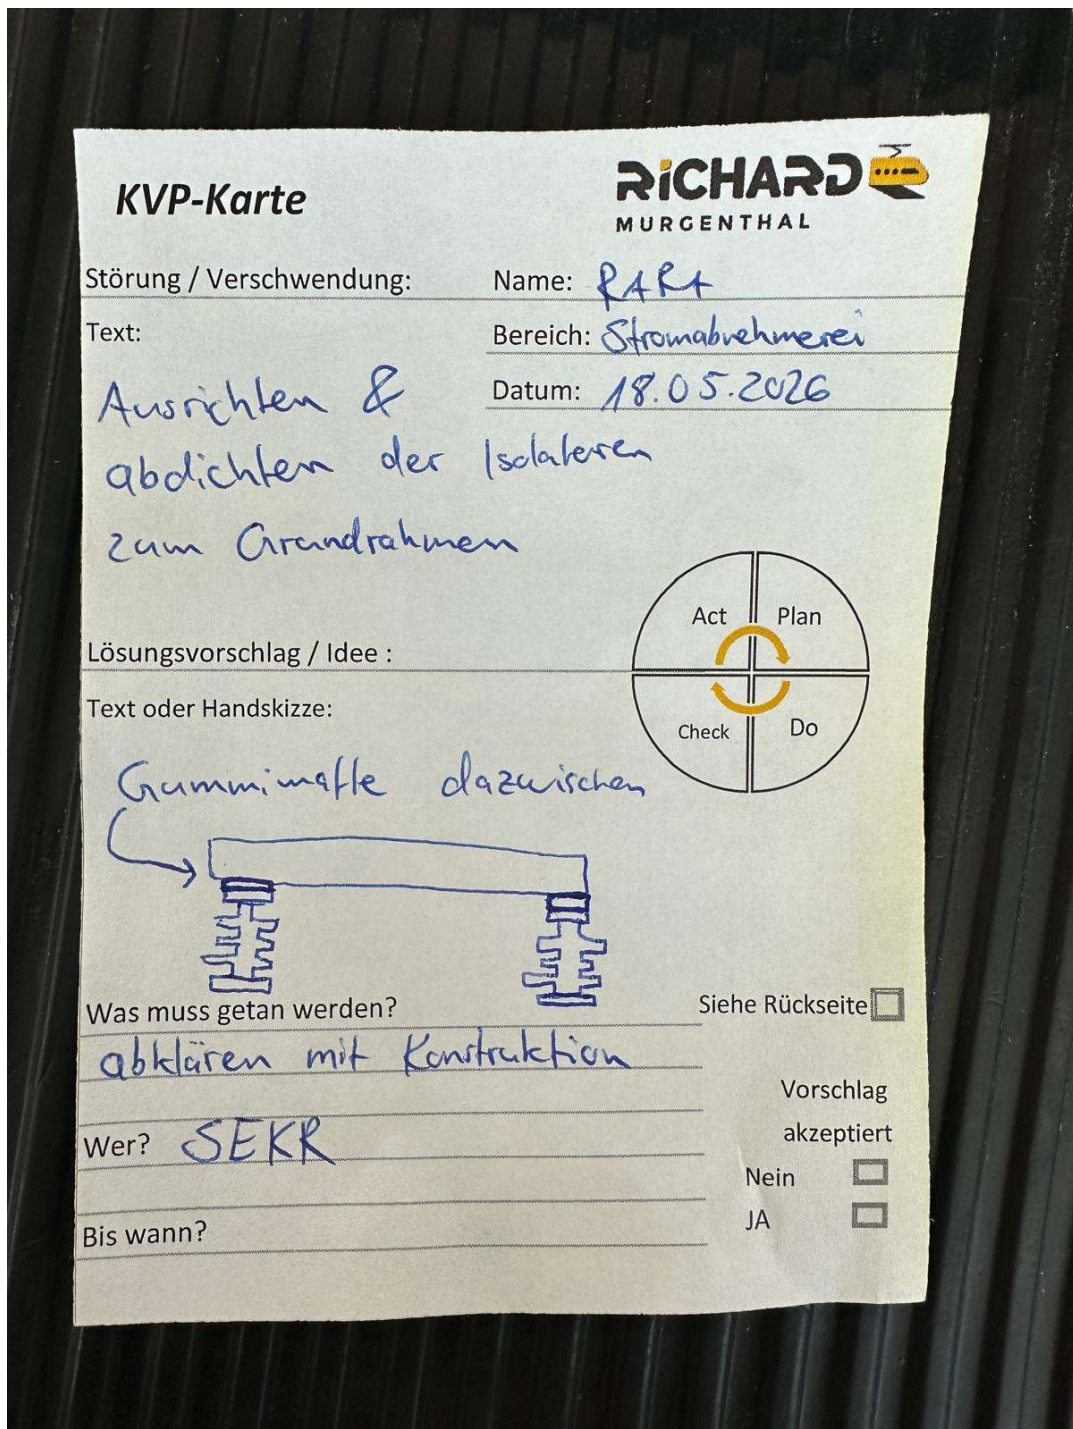 KVP-Karte
RiCHARD
MURGENTHAL
Störung / Verschwendung:
Name: RARA
Text:
Bereich: Stromabnehmerei
Datum: 18.05.2026
Ausrichten &
abdichten der Isolatoren
zum Grundrahmen
Act Plan
Check Do
Lösungsvorschlag / Idee :
Text oder Handskizze:
Gummimatte dazwischen
Was muss getan werden?
Siehe Rückseite
abklären mit Konstruktion
Vorschlag
akzeptiert
Wer? SEKR
Nein
JA
Bis wann?